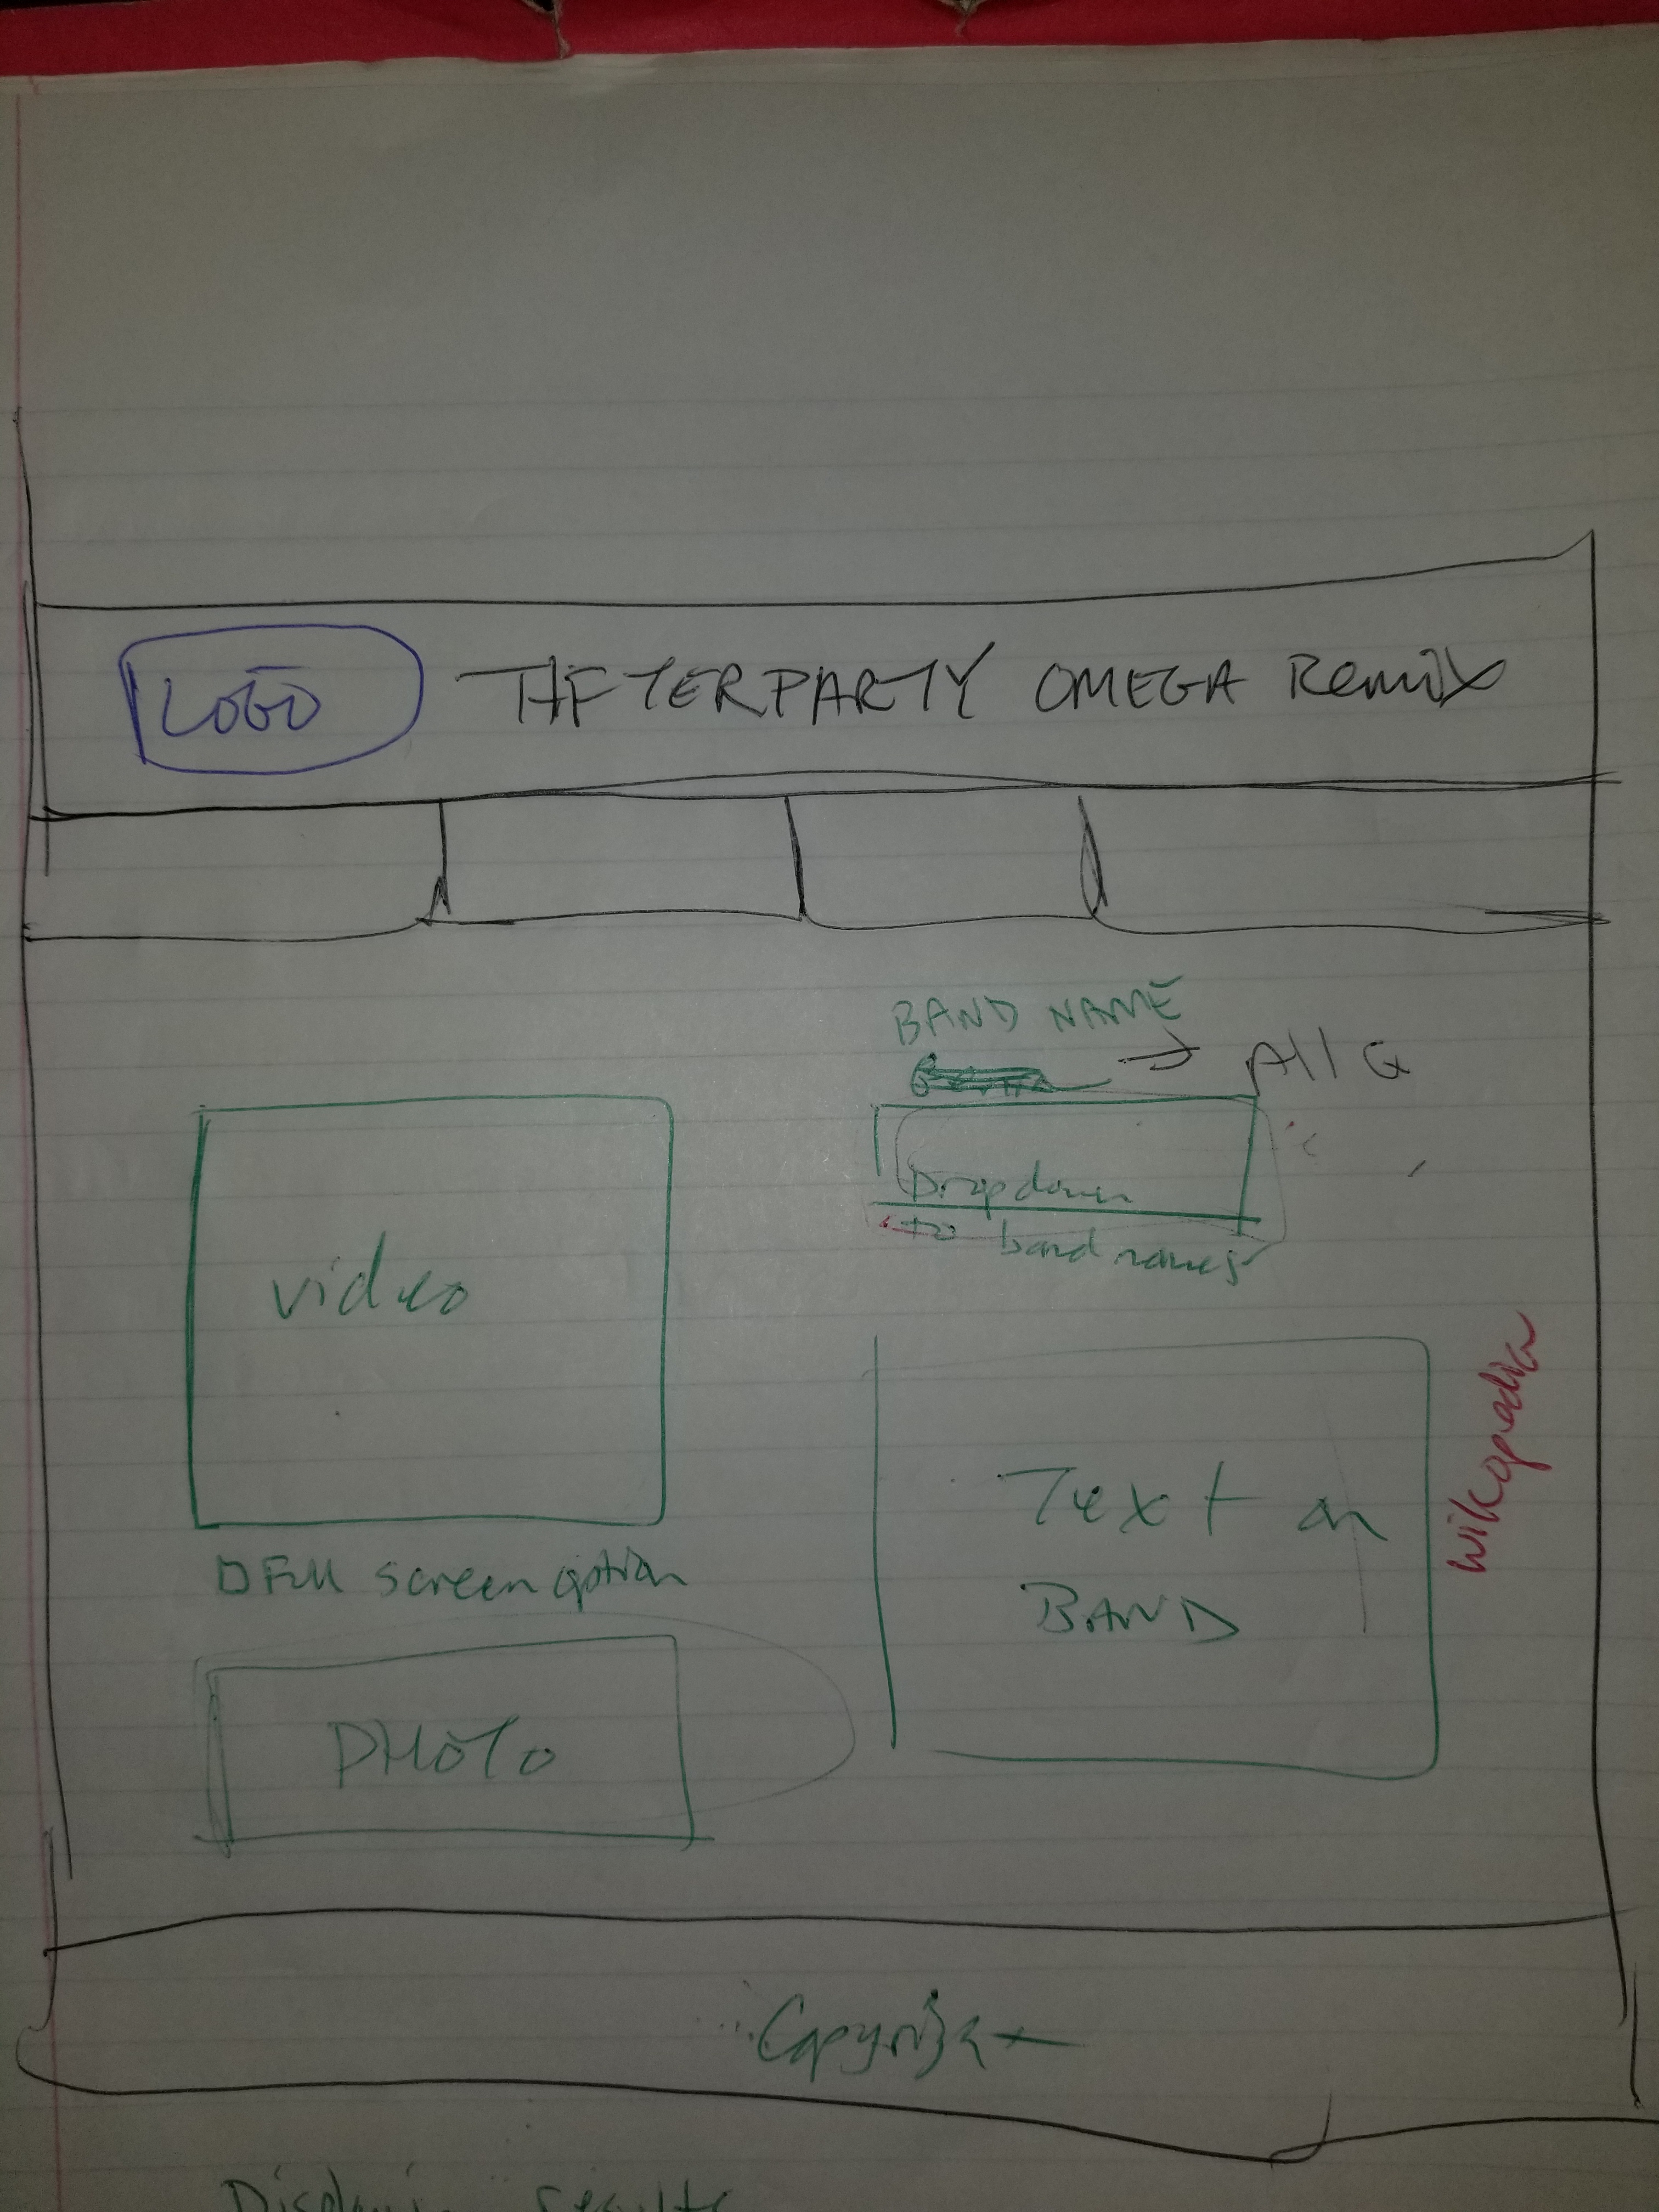 LOGO THFTERPARTY OMEGA Remix
BAND NAME
→ All G
Dropdown
to band names
video
Full screen option
Text on
BAND
wikopedia
PHOTO
Copyright
results